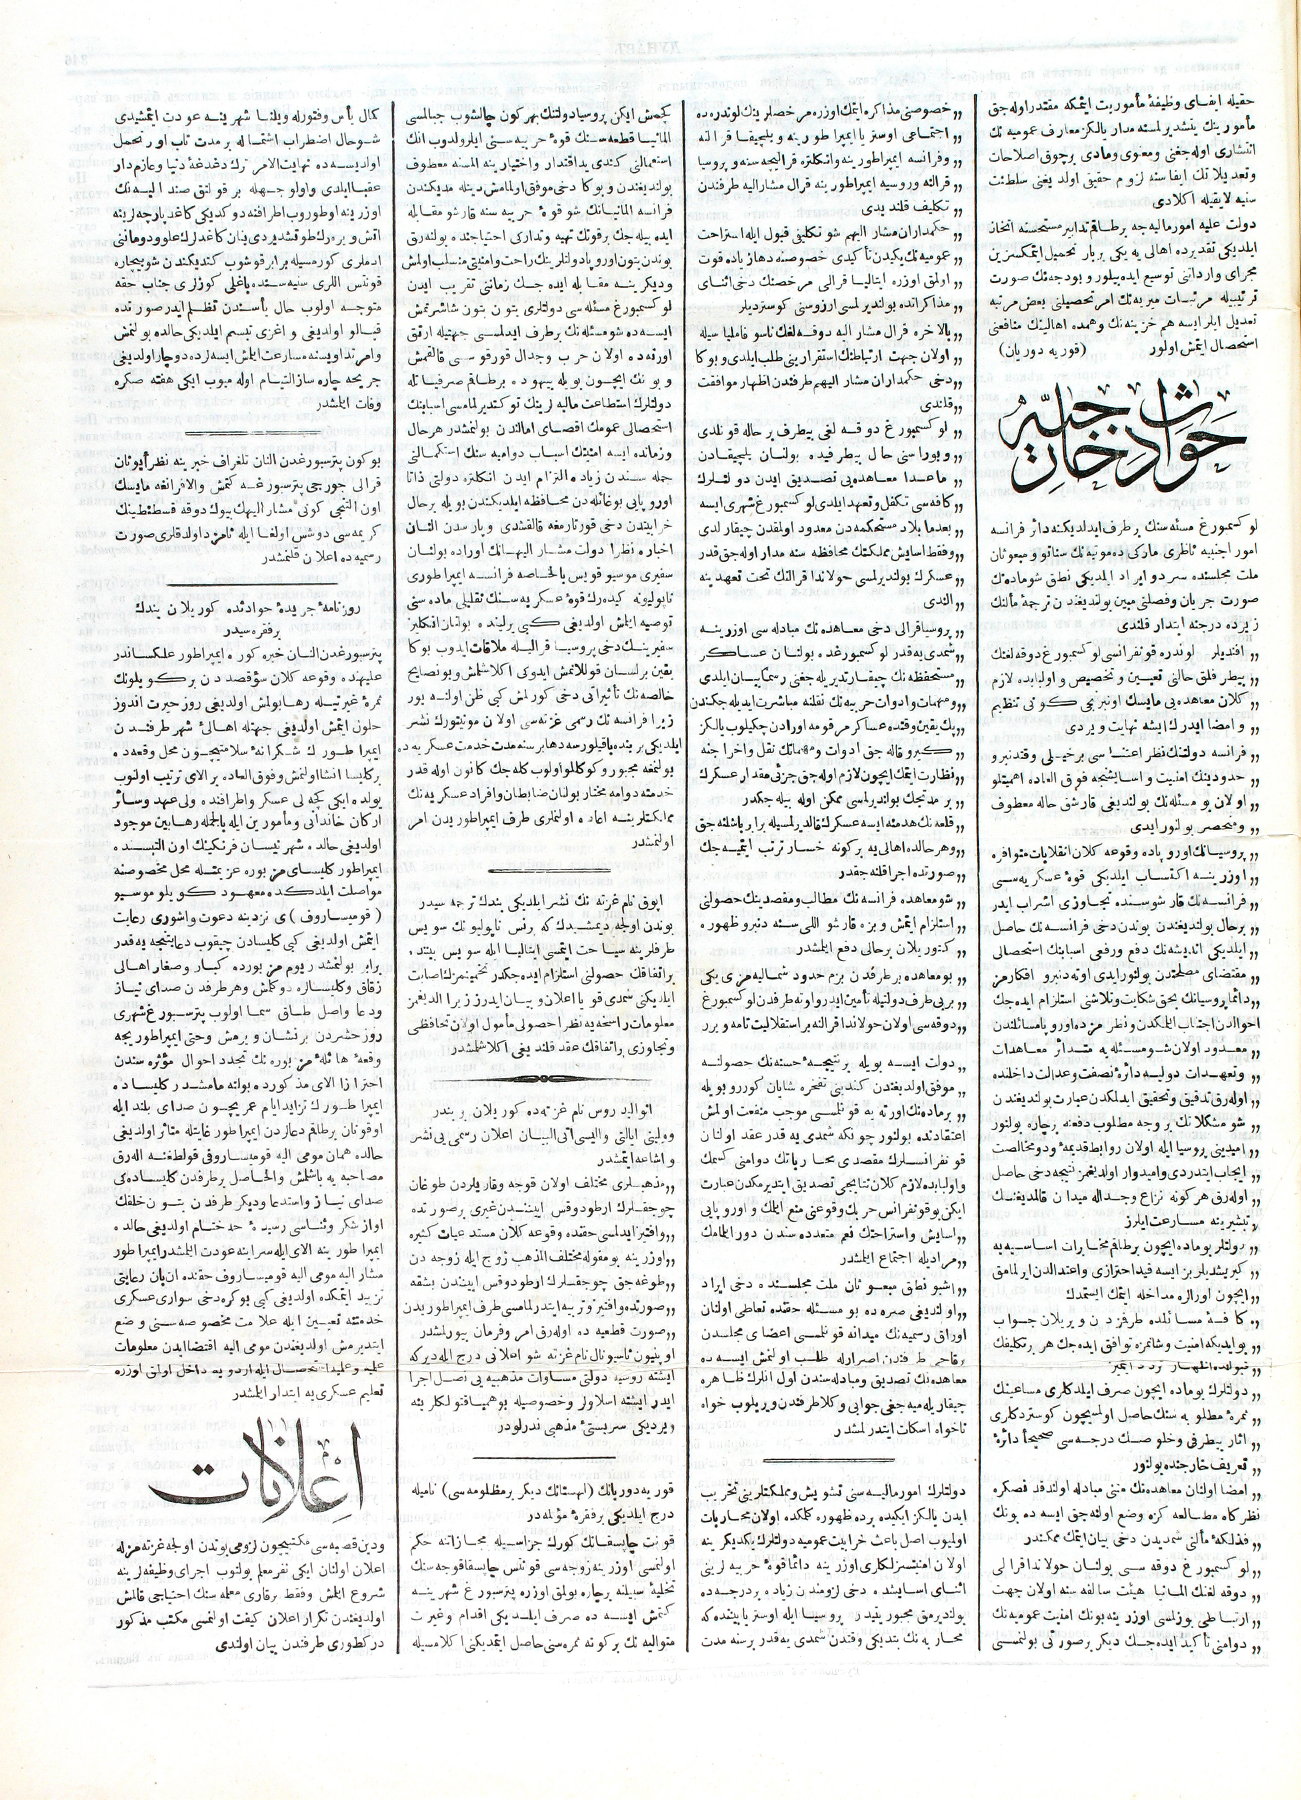 حقيله ايفاى وظيفهٔ مأموريت ايتمكه مقتدر اوله جق
مأمورينك يتشديرلمسنه مدار يالكز معارف عموميه نك
انتشارى اوله جغنى ومعنوى ومادى برچوق اصلاحات
وتعديلاتك ايفاسنه لزوم حقيقى اولديغنى سلطنت
سنيه لايقيله اكلادى
دولت عليه امور ماليه جه بر طاقم تدابير مستحسنه اتخاذ
ايلديكى تقديرده اهالى يه يكى بر بار تحميل ايتمكسزين
مجراى وارداتنى توسيع ايده بيلور و بودجه نك صورت
ترتيبيله مرتبات ميريه نك امر تحصيلنى بعض مرتبه
تعديل ايلر ايسه هم خزينه نك وهمده اهالينك منافعنى
استحصال ايتمش اولور (قوريه دوريان)
حوادث خارجيه
لوكسمبورغ مسئله سنك بر طرف ايدلديكنه دائر فرانسه
امور اجنبيه ناظرى ماركى ده مونيه نك سناتو و مبعوثان
ملت مجلسنده سرد و ايراد ايلديكى نطق شوماده نك
صورت جريان وفصلنى مبين بولنديغندن ترجمهٔ مآلنك
زيرده درجنه ابتدار قلندى
„ افنديلر لوندره قونفرانسى لوكسمبورغ دوقه لغنك
„ بيطرفلق حالنى تعيين و تخصيص و اولبابده لازم
„ كلان معاهده يى مايسك اون برنجى كونى تنظيم
„ و امضا ايدرك ايشه نهايت ويردى
„ فرانسه دولتنك نظر اعتناسى برخيلى وقتدنبرو
„ حدودينك امنيت و اسايشنجه فوق العاده اهميتلو
„ اولان بو مسئله نك بولنديغى قارشق حاله معطوف
„ ومنحصر بولنور ايدى
„ پروسيانك اوروپاده وقوعه كلان انقلابات متوافره
„ اوزرينه اكتساب ايلديكى قوهٔ عسكريه سى
„ فرانسه نك قارشوسنده تجاوزى اشراب ايدر
„ برحال بولنديغندن بوندن دخى فرانسه نك حاصل
„ ايلديكى انديشه نك دفع ورفعى اسبابنك استحصالى
„ مقتضاى مصلحتدن بولنور ايدى اوته دنبرو افكارمز
„ دائما پروسيانك بحق شكايت و تلاشنى استلزام ايده جك
„ احوالدن اجتناب ايلمكدن و نظرمزده اوروپا مسائلندن
„ معدود اولان شو مسئله يه متدائر معاهدات
„ وتعهدات دوليه دائرهٔ نصفت و عدالت داخلنده
„ اوله رق تدقيق وتحقيق ايدلمكدن عبارت بولنديغندن
„ شو مشكلاتك بر وجه مطلوب دفعنه برچاره بولنور
„ اميدينى پروسيا ايله اولان روابط قديمه و دوختالصت
„ ايجاب ايتدردى واميدوار اولديغمز نتيجه دخى حاصل
„ اوله رق هر كونه نزاع و جداله ميدان قالمديغنك
„ تبشيرينه مسارعت ايلرز
„ دولتلر بو ماده ايچون بر طاقم مخابرات اساسيه يه
„ كيريشديلر بز ايسه قيد احترازى واعتدالدن ايرلمامق
„ ايچون اورالره مداخله ايتمك ايستمدك
„ كافهٔ مسائلده طرفزدن ويريلان جواب
„ بوايديكه امنيت و شانمزه توافق ايده جك هر تكليفك
„ قبولنده اظهار تردد ايتميز
„ دولتلرك بو ماده ايچون صرف ايلدكلرى مساعينك
„ ثمرهٔ مطلوبه سنك حاصل اولمسيچون كوستردكلرى
„ آثار بيطرفى و خلوصك درجه سى صحيحاً دائرهٔ
„ تعريف خارجنده بولنور
„ امضا اولنان معاهده نك متنى مبادله اولندقدنصكره
نظركاه مطالعه كزه وضع اولنه جق ايسه ده بونك
„ فذلكهٔ مآلنى شمديدن دخى بيان ايتمك ممكندر
„ لوكسمبورغ دوقه سى بولنان حولاندا قرالى
„ دوقه لغنك المانيا هيئت سالفه سنه اولان جهت
„ ارتباطى بوزلمسى اوزرينه بونك امنيت عموميه نك
„ دوامنى تأكيد ايده جك ديكر بر صورتى بولنمسى
„ خصوصنى مذاكره ايتمك اوزره مرخصلرينك لوندره ده
„ اجتماعى اوستريا ايمپراطورينه و بلچيقا قرالنه
„ وفرانسه ايمپراطورينه وانكلتره قراليچه سنه و پروسيا
„ قرالنه وروسيه ايمپراطورينه قرال مشاراليه طرفندن
„ تكليف قلنديدى
„ حكمداران مشار اليهم شو تكليفى قبول ايله استراحت
„ عموميه نك يكيدن تأكيدى خصوصنه دها زياده قوت
„ اولمق اوزره ايتاليا قرالى مرخصنك دخى اثناى
„ مذاكراتده بولنديرلمسى ارزوسنى كوسترديلر
„ بالاخره قرال مشار اليه دوقه لغك ناسو فاميلياسيله
„ اولان جهت ارتباطنك استقرارينى طلب ايلدى و بوكا
„ دخى حكمداران مشار اليهم طرفندن اظهار موافقت
„ قلندى
„ لوكسمبورغ دوقه لغى بيطرف بر حاله قونلدى
„ و بوراسنى حال بيطرفيده بولنان بلچيقادن
„ ماعدا معاهده يى تصديق ايدن دولتلرك
„ كافه سى تكفل و تعهد ايلدى لوكسمبورغ شهرى ايسه
„ بعدما بلاد مستحكمه دن معدود اولمقدن چيقارلدى
„ وفقط اسايش مملكتك محافظه سنه مدار اوله جق قدر
„ عسكرك بولنديرلمسى حولاندا قرالنك تحت تعهدينه
„ النـدى
„ پروسيا قرالى دخى معاهده نك مبادله سى اوزرينه
„ شمدى يه قدر لوكسمبورغده بولنان عساكر
„ مستحفظه نك چيقارتديريله جغنى رسماً بيان ايلدى
„ ومهمات وادوات حربيه نك نقلنه مباشرت ايديله جكندن
„ پك يقين وقتده عساكر مرقومه اورادن چكيلوب يالكز
„ كيرو قاله جق ادوات و مهماتك نقل واخراجنه
„ نظارت ايتمك ايچون لازم اوله جق جزئى مقدار عسكرك
„ بر مدتجك بولنديرلمسى ممكن اوله بيله جكدر
„ قلعه نك هدمنه ايسه عسكرك قالديرلمسيله برابر باشلنه جق
„ وهر حالده اهالى يه بركونه خسار ترتب ايتميه جك
„ صورتده اجرا قلنه جقدر
„ شو معاهده فرانسه نك مطالب و مقصدينك حصولنى
„ استلزام ايتمش و بزه قارشو اللى سنه دنبرو ظهوره
„ كتوريلان بر حالى دفع ايلمشدر
„ بو معاهده بر طرفدن بزم حدود شماليه مزى يكى
„ بر بى طرف دولتيله تأمين ايدر و اوته طرفدن لوكسمبورغ
„ دوقه سى اولان حولاندا قرالنه بر استقلاليت تامه ويرر
„ دولت ايسه بويله بر نتيجهٔ حسنه نك حصولنه
„ موفق اولديغندن كندينى تفخره شايان كورر و بويله
„ بر ماده نك اورته يه قونلمسى موجب منفعت اولمش
اعتقادنده بولنور چونكه شمدى يه قدر عقد اولنان
قونفرانسلرك مقصدى محارباتك دوامنى كسمك
واولبابده لازم كلان نتايجى تصديق ايتديرمكدن عبارت
ايكن بو قونفرانس حربك وقوعنى منع ايتمك و اوروپايى
„ اسايش واستراحتك نعم متعدده سندن دور ايلمامك
„ مراديله اجتماع ايلمشدر
„ اشبو نطق مبعوثان ملت مجلسنده دخى ايراد
„ اولنديغى صره ده بو مسئله حقنده تعاطى اولنان
اوراق رسميه نك ميدانه قونلمسى اعضاى مجلسدن
„ قاچى طرفندن اصرار ايله طلب اولنمش ايسه ده
معاهده نك تصديق و مبادله سندن اول انلرك ظاهره
چيقاريله ميه جغى جوابى وكلا طرفندن ويريلوب خواه
ناخواه اسكات ايتديرلمشدر
دولتلرك امور ماليه سنى تشويش و مملكتلرينى تخريب
ايدن يالكز ايكيده برده ظهوره كلمكده اولان محاربات
اوليوب اصل باعث خرابيت عموميه دولتلرك يكديكرينه
اولان امنيتسزلكلرى اوزرينه دائما قوهٔ حربيه لرينى
اثناى اسايشده دخى لزومندن زياده بر درجه ده
بولنديرمق مجبوريتيدر پروسيا ايله اوستريا بيننده كه
محاربه نك بتديكى وقتدن شمدى يه قدر برسنه مدت
كچمش ايكن پروسيا دولتنك هر كون چالشوب جبالسى
المانيا قطعه سنك قوهٔ حربيه سنى ايلرولدوب انك
استعمالنى كندى يد اقتدار و اختيارينه المسنه معطوف
بولنديغندن و بوكا دخى موفق اولمامش دينله مديكندن
فرانسه المانيانك شو قوهٔ حربيه سنه قارشو مقابله
ايده بيله جك بر قوتك تهيه و تداركى احتياجنده بولنه رق
بوندن بتون اوروپا دولتلرينك راحت وامنيتى منسلب اولمش
و ديكرينه مقابله ايده جك زمانى تقريب ايدن
لوكسمبورغ مسئله سى دولتلرى بتون بتون شاشرتمش
ايسه ده شو مسئله نك بر طرف ايدلمسى جهتيله ارتق
اورته ده اولان حرب و جدال قورقوسى قالقمش
و بونك ايچون بويله بيهوده بر طاقم صرفياتله
دولتلرك استطاعت ماليه لرينك توكنديرلمامسى اسبابنك
استحصالى عمومك اقصاى امالندن بولنمشدر هر حال
وزمانده ايسه امنيتك اسباب دواميه سنك استكمالنى
جمله سندن زياده التزام ايدن انكلتره دولتى ذاتا
اوروپايى بوغائله دن محافظه ايلديكندن بويله بر حال
خرابيتدن دخى قورتارمغه قالقشدى وپارسدن النان
اخباره نظراً دولت مشار اليهانك اوراده بولنان
سفيرى موسيو قويس بالخاصه فرانسه ايمپراطورى
ناپوليونه كيده رك قوهٔ عسكريه سنك تقليلى ماده سنى
توصيه ايتمش اولديغى كبى برلينده بولنان انكليز
سفيرينك دخى پروسيا قراليله ملاقات ايدوب بوكا
يقين بر لسان قوللانمش ايدوكى اكلاشلمش و بو نصايح
خالصه نك تأثيراتى دخى كورلمش كبى ظن اولنه يور
زيرا فرانسه نك رسمى غزته سى اولان مونيتورك نشر
ايلديكى بر بنده باقيلورسه دها برسنه مدت خدمت عسكريه ده
بولنمغه مجبور و كوكللو اولوب كله جك كانون اوله قدر
خدمته دوامه مختار بولنان ضابطان وافراد عسكريه نك
مملكتلرينه اعاده اولنملرى طرف ايمپراطوريدن امر
اولنمشدر
اپوق نام غزته نك نشر ايلديكى بندك ترجمه سيدر
بوندن اولجه ديمشدك كه پرنس ناپوليونك سويس
طرفلرينه سياحت ايتمسى ايتاليا ايله سويس بيننده
بر اتفاقك حصولنى استلزام ايده جكدر تخمينمزك اصابت
ايلديكنى شمدى قويا اعلان و بيان ايدرز زيرا الديغمز
معلومات راسخه يه نظراً حصولى مأمول اولان تحافظى
و تجاوزى بر اتفاقك عقد قلنديغى اكلاشلمشدر
انوالید روس نام غزته ده كوريلان بر بنددر
وولينى ايالتى واليسى آتى البيان اعلان رسمى يى نشر
و اشاعه ايتمشدر
„ مذهبلرى مختلف اولان قوجه و قاريلردن طوغان
چوجقلرك ارطودوقس آييننـدن غيرى بر صورتده
„ وافتيز ايدلمسى حقنده وقوعه كلان مستدعيات كثيره
„ اوزرينه بو مقوله مختلف المذهب زوج ايله زوجه دن
„ طوغه جق چوجقلرك ارطودوقس آييننـدن بشقه
„ صورتده وافتيز و تربيه ايتدرلمامسى طرف ايمپراطوريدن
„ صورت قطعيه ده اوله رق امر و فرمان بيورلمشدر
اوپنيون ناسيونال نام غزته شو اعلانى درج ايله ديركه
ايشته روسيه دولتى مساوات مذهبيه يى نصل اجرا
ايدر ايشته اسلاولر و خصوصيله بوهميا قتولكلرينه
ويرديكى سربستئ مذهبى ندرلودر
قوريه دوريانك (لهستانك ديكر بر مظلومه سى) ناميله
درج ايلديكى بر فقرهٔ مؤلمه در
قونت چاپسقاتك كورك جزاسيله مجازاتنه حكم
اولنمسى اوزرينه زوجه سى قونتس چاپسقا قوجه سنك
تخليهٔ سبيلنه برچاره بولمق اوزره پترسبورغ شهرينه
كتمش ايسه ده صرف ايلديكى اقدام وغيرت
متواليه نك بركونه ثمره سنى حاصل ايتمديكنى اكلامسيله
كمال يأس و فتورله ويلنا شهرينه عودت ايتمشيدى
شو حال اضطراب اشتماله بر مدت تاب اور تحمل
اولديسه ده نهايت الامر ترك دغدغهٔ دنيا و عازم دار
عقبا ايلدى و اولو جهله بر قولتق صندليه نك
اوزرينه اوطوروب اطرافنه دوكديكى كاغد پارچه لرينه
اتش ويره رك طوتشديردى يانان كاغدلرك علو و دومانى
ادملرى كورمسيله برابر قوشوب كندكيكندن شو بيچاره
قونتس اللرى سنيه سنده باغلى كوزلرى جناب حقه
متوجه اولوب حال يأسندن تظلم ايدر صورتده
قپالو اولديغى و اغزى تبسم ايلديكى حالده بولنمش
وامر تداويسنه مسارعت ايلمش ايسه لرده دوچار اولديغى
جريحه چاره ساز التيام اوله ميوب ايكى هفته صكره
وفات ايلمشدر
بوكون پترسبورغدن النان تلغراف خبرينه نظراً يونان
قرالى جورجى پترسبورغه كتمش والافرانغه مايسك
اون التنجى كونى مشار اليهك بيوك دوقه قسطنطينك
كريمه سى دوشس اولغا ايله نامزد اولدقلرى صورت
رسميه ده اعلان قلنمشدر
روزنامهٔ جريدهٔ حوادثده كوريلان بندك
بر فقره سيدر
پترسبورغدن النان خبره كوره ايمپراطور علكساندر
عليهنده وقوعه كلان سؤقصددن بركويلونك
ثمرهٔ غيرتيله رها بولمش اولديغى روز حيرت اندوز
حلول ايتمش اولديغى جهتله اهالئ شهر طرفندن
ايمپراطورك شكرانهٔ سلامتيچون محل وقعه ده
بر كليسا انشا اولنمش و فوق العاده بر آلاى ترتيب اولنوب
يولده ايكى كچه لى عسكر واطرافنده ولى عهد و سائر
اركان خاندانى و مأمورين ايله بالجمله رهابين موجود
اولديغى حالده شهر نيسان فرنكينك اون التيسنده
ايمپراطور كليساى مزبوره عزيمتله محل مخصوصنه
مواصلت ايلدكده معهود كويلو موسيو
(قوميساروف) ى نزدينه دعوت و اشورى رعايت
ايتمش اولديغى كبى كليسادن چيقوب دعا بتنجه يه قدر
برابر بولنمشدر يوم مزبورده كبار و صغار اهالى
زقاق و كليسالره دوكلمش و هر طرفدن صداى نياز
ودعا واصل طاق سما اولوب پترسبورغ شهرى
روز حشردن بر نشان ويرمش و حتى ايمپراطوريجه
وقعهٔ هائلهٔ مزبوره نك تجدد احوال مؤثره سندن
احترازا آلاى مذكورده بولنه مامشدر كليساده
ايمپراطورك تزايد ايام عمريچون صداى بلند ايله
اوقونان بر طاقم دعالردن ايمپراطور غايتله متأثر اولديغى
حالده همان مومى اليه قوميساروفى قولطغنه اله رق
مصاحبه يه باشلمش والحاصل بر طرفدن كليساده كى
صداى نياز واستدعا و ديكر طرفدن بتون خلقك
اواز شكر و ثناسى رسيدهٔ حد ختام اولديغى حالده
ايمپراطور ينه آلاى ايله سراينه عودت ايلمشدر ايمپراطور
مشار اليه مومى اليه قوميساروف حقنده ان بان رعايتى
تزييد ايتمكده اولديغى كبى بو كره دخى سوارى عسكرى
خدمتنه تعيين ايله علامت مخصوصه سنى وضع
ايتديرمش اولديغندن مومى اليه اقتضا ايدن معلومات
علميه و عمليه استحصال ايله اردو يه داخل اولمق اوزره
تعليم عسكرى يه ابتدار ايلمشدر
اعلانات
ودين قصبه سى مكتبيچون لزومى بوندن اولجه غزته مزله
اعلان اولنان ايكى نفر معلم بولنوب اجراى وظيفه لرينه
شروع ايتمش و فقط برقارى معلمه سنك احتياجى قالمش
اولديغندن تكرار اعلان كيفت اولنمسى مكتب مذكور
دركطورى طرفندن بيان اولندى